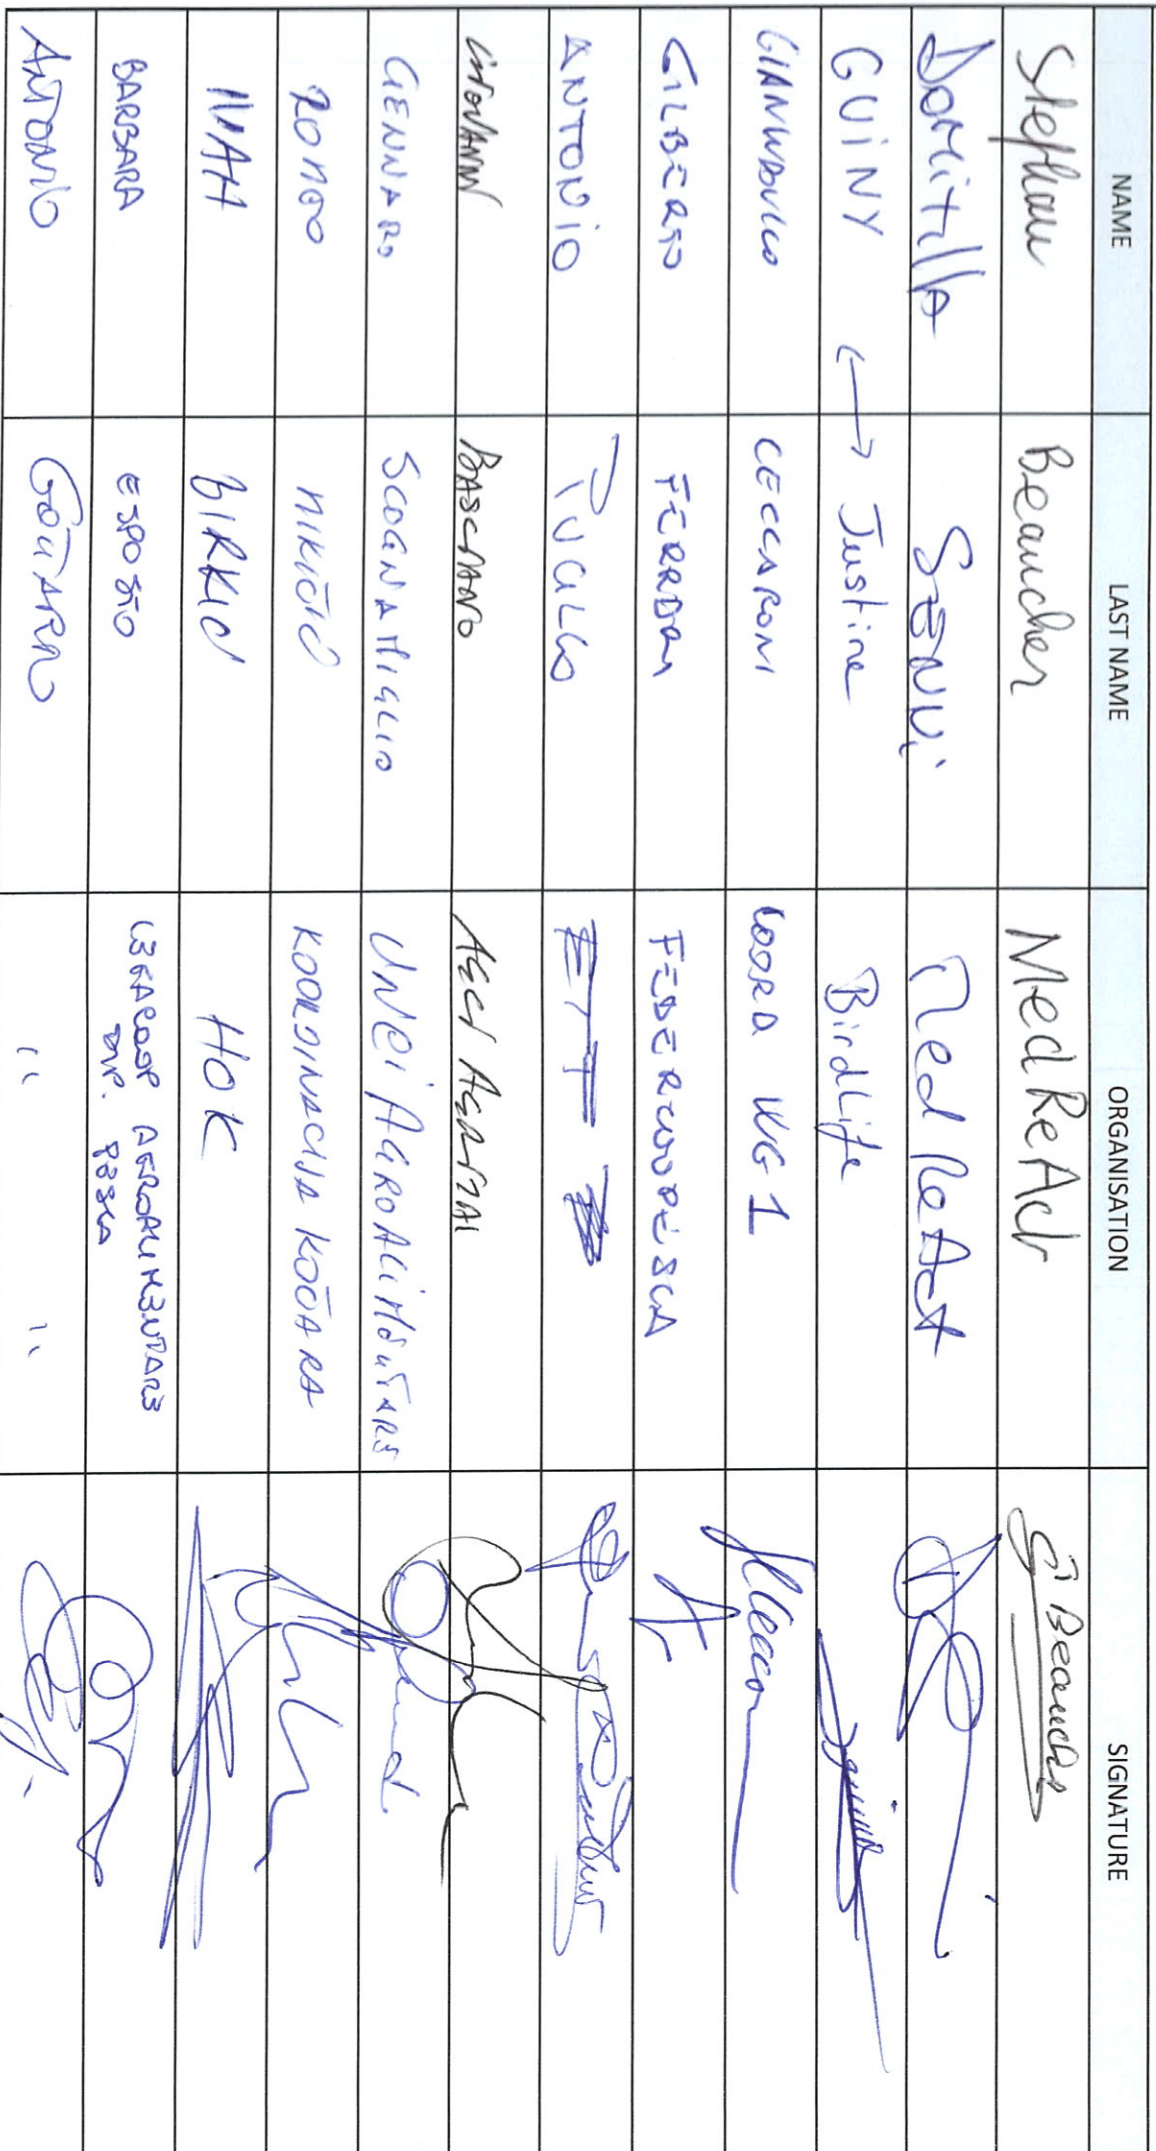 NAME LAST NAME ORGANISATION SIGNATURE
Stephan Beaucher MedReAct Beaucher
Domitilla SENNI MedReAct
GUINY ↔ Justine BirdLife
CECCARONI COORD WG1
GILBERTO FERRARI FEDERCOOPESCA
ANTONIO PUCILLO
GIOVANNI BASCIANO AGCI AGRITAL
GENNARO SCOGNAMIGLIO UNCI AGROALIMENTARE
ROMEO MIKIČIĆ KOORDINACIJA KOČARA
IVAN BIRKIĆ HOK
BARBARA ESPOSTO LEGACOOP AGROALIMENTARE
DIP. PESCA
ANTONIO GOTTARDO " "